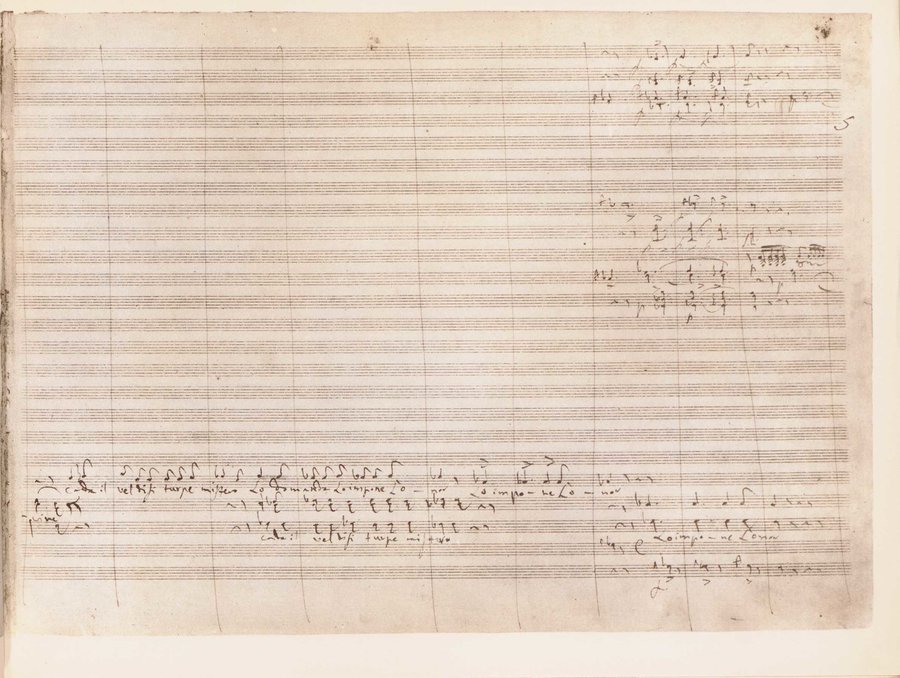 5
cada il vel disi turpe mistero Lo domanda Lo impone Lo - nor Lo impo - ne Lo - nor
cada il vel disi turpe mistero Lo impo - ne Lonor